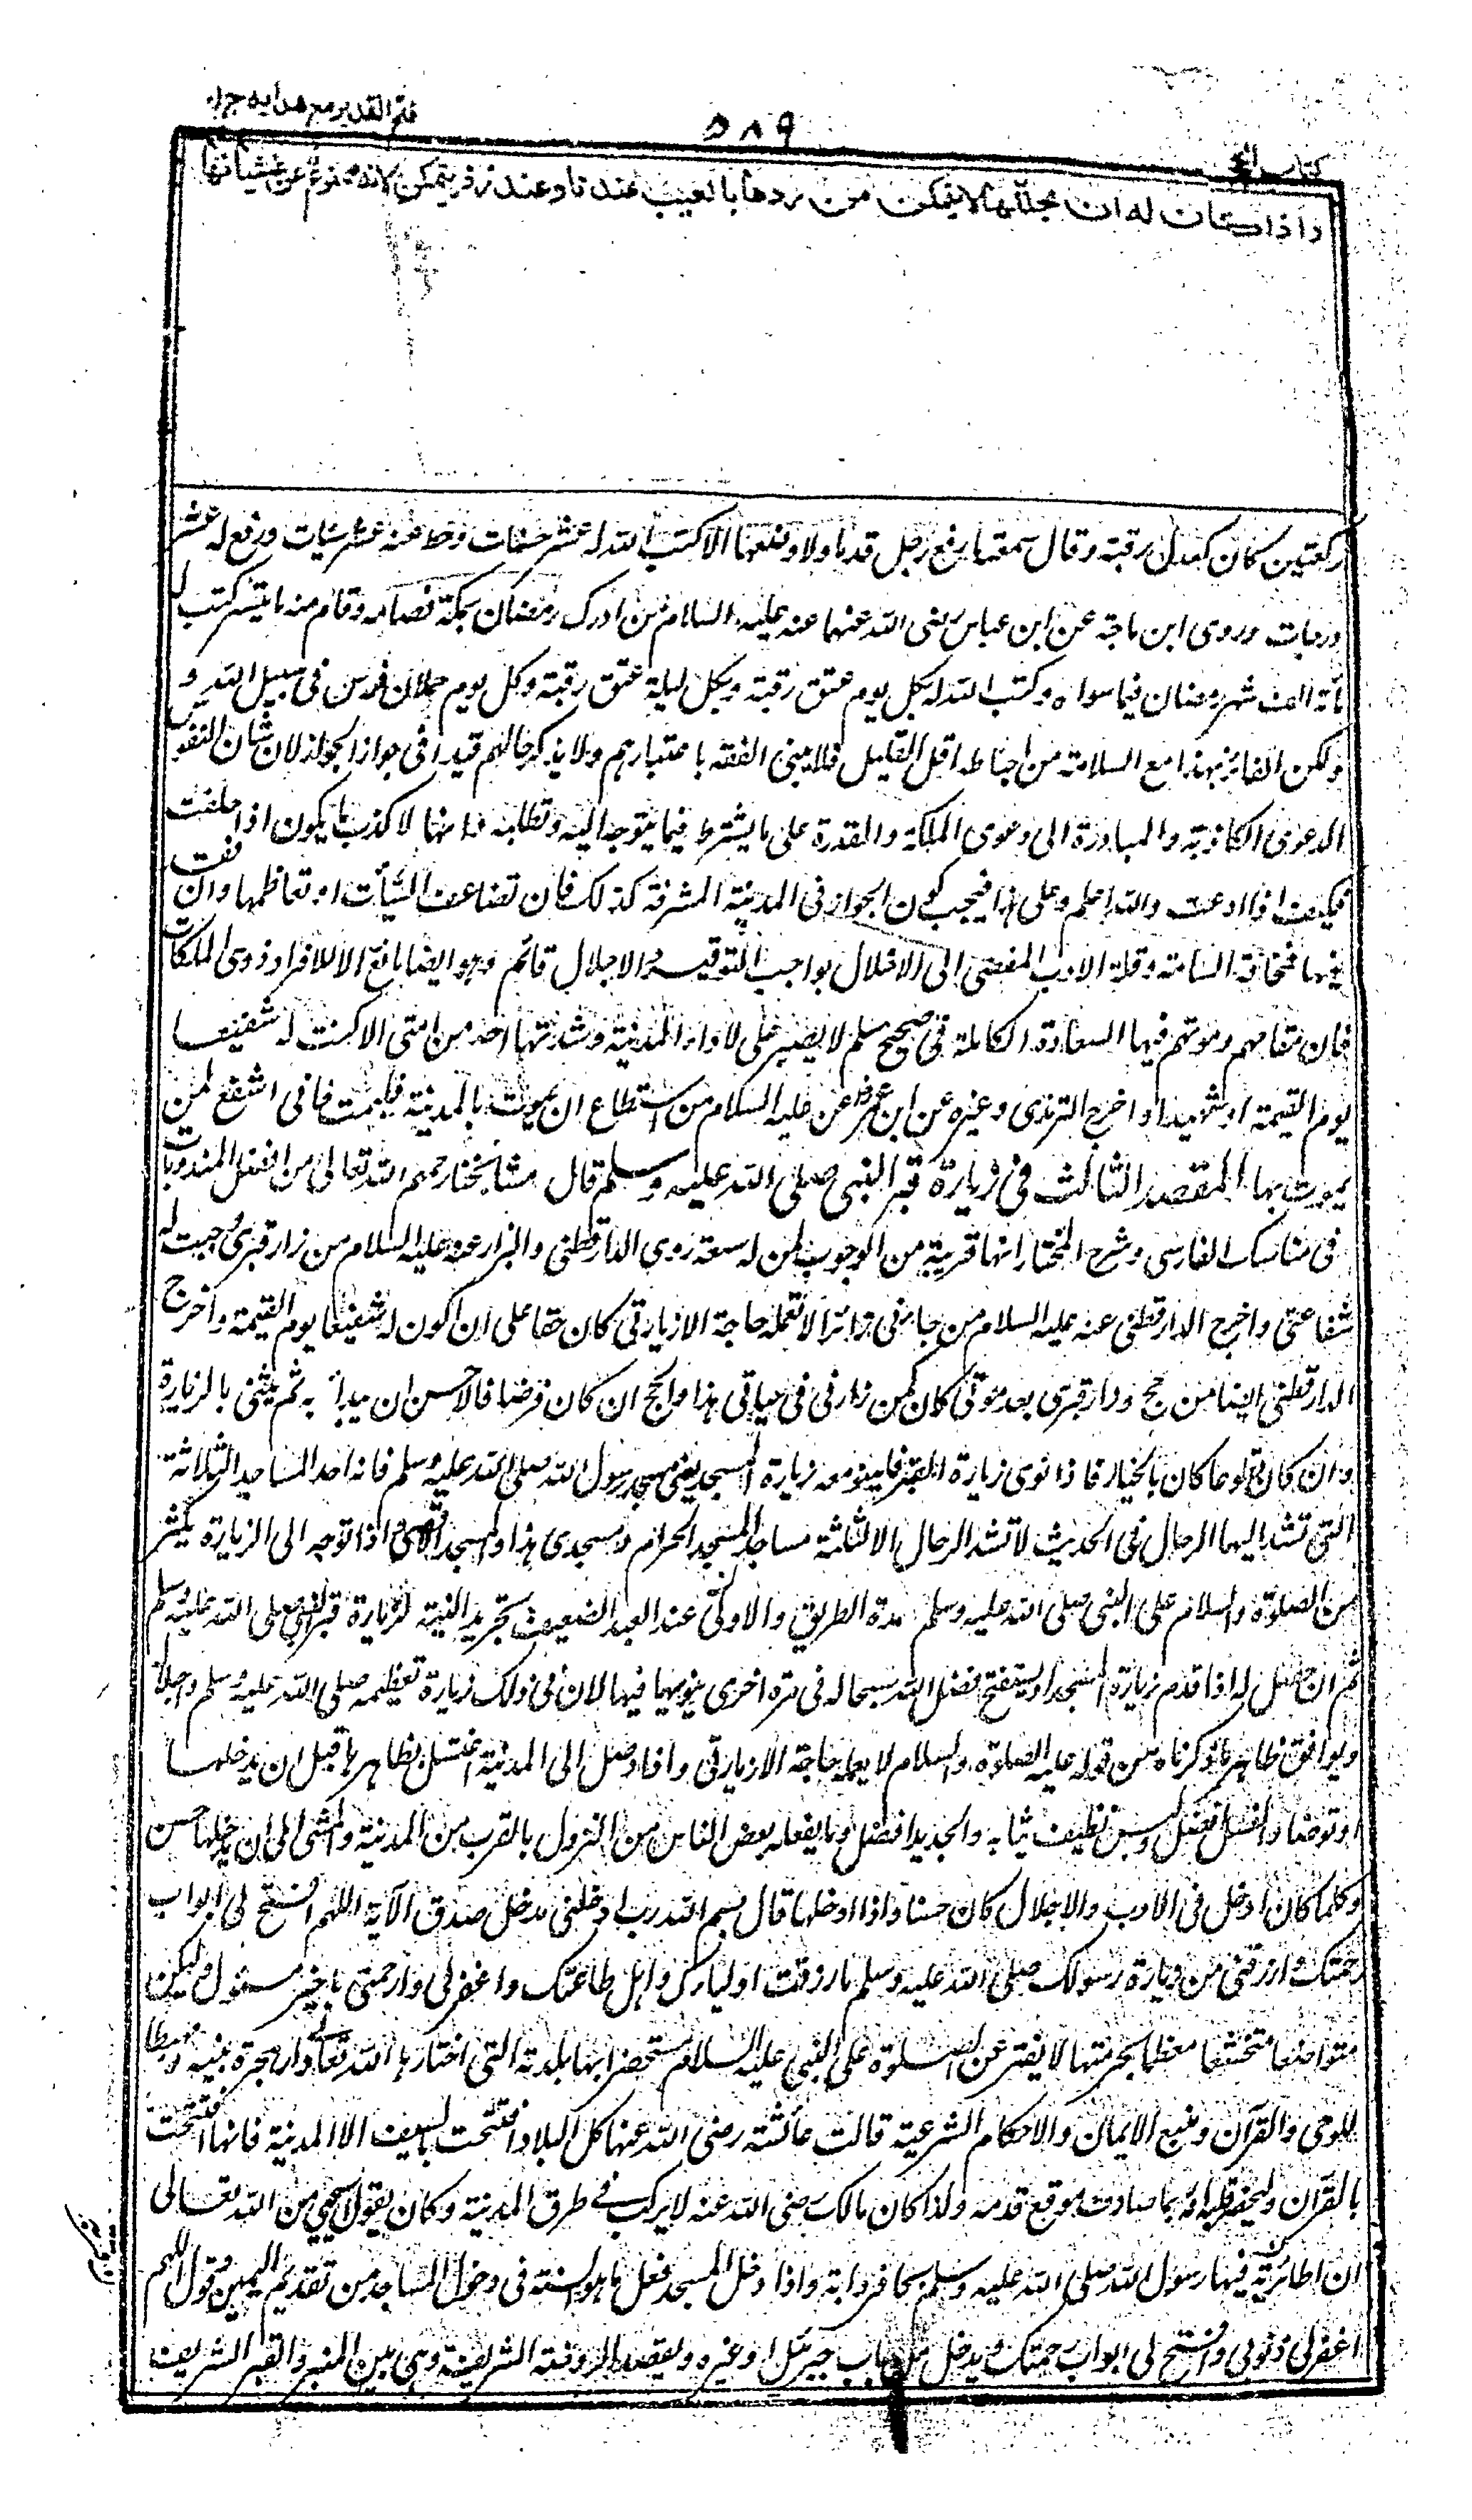 فتح القدیر مع ھدایہ جزء
۵۸۹
کتاب الحج
واذا كان له ان يحللها لا يتمكن من ردها بالعيب عندنا وعند زفر يتمكن لانه ممنوع عن غشيانها
ركعتين كان كعدل رقبة وقال سمعته ما رفع رجل قدما ولا وضعها الا كتب الله له عشر حسنات وحط عنه عشر سيئات ورفع له عشر
درجات وروى ابن ماجة عن ابن عباس رضى الله عنهما عنه عليه السلام من ادرك رمضان بمكة فصامه وقام منه ما تيسر كتب له
مأة الف شهر رمضان فيما سواه وكتب الله له بكل يوم عتق رقبة وبكل ليلة عتق رقبة وكل يوم حملان فرس فى سبيل الله و
ولكن الفائز بهذا مع السلامة من احباطه اقل القليل فلا يبنى الفقه باعتبارهم ولا يذكر حالهم قيدا فى جواز الجواز لان شان النفوس
الدعوى الكاذبة والمبادرة الى دعوى الملكة والقدرة على ما يشترط فيما يتوجه اليه وتطلبه وانها لاكذب ما يكون اذا حلفت
فكيف اذا ادعت والله اعلم وعلى هذا فيجب كون الجوار فى المدينة المشرفة كذلك فان تضاعف السيأت او تعاظمها وان فقت
فيها فمخافة السامة وقلة الادب المفضى الى الاخلال بواجب التوقير والاجلال قائم وهو ايضا مانع الا للافراد ذوى الملكات
فان مقامهم وموتهم فيها السعادة الكاملة فى صحيح مسلم لا يصبر على لاواء المدينة وشدتها احد من امتى الا كنت له شفيعا
يوم القيمة او شهيدا واخرج الترمذى وغيره عن ابن عمر رض عن عليه السلام من استطاع ان يموت بالمدينة فليمت فانى اشفع لمن
يموت بها المقصد الثالث فى زيارة قبر النبى صلى الله عليه وسلم قال مشايخنا رحمهم الله تعالى من افضل المندوبات
فى مناسك الفارسى وشرح المختار انها قريبة من الوجوب لمن له سعة روى الدارقطنى والبزار عنه عليه السلام من زار قبرى وجبت له
شفاعتى واخرج الدارقطنى عنه عليه السلام من جاءنى زائرا لا تعمله حاجة الا زيارتى كان حقا على ان اكون له شفيعا يوم القيمة واخرج
الدارقطنى ايضا من حج وزار قبرى بعد موتى كان كمن زارنى فى حياتى هذا والحج ان كان فرضا فالاحسن ان يبدأ به ثم يثنى بالزيارة
وان كان تطوعا كان بالخيار فاذا نوى زيارة القبر فلينو معه زيارة المسجد يعنى مسجد رسول الله صلى الله عليه وسلم فانه احد المساجد الثلاثة
التى تشد اليها الرحال فى الحديث لا تشد الرحال الا لثلثة مساجد المسجد الحرام ومسجدى هذا والمسجد الاقصى اذا توجه الى الزيارة يكثر
من الصلوة والسلام على النبى صلى الله عليه وسلم مدة الطريق والاولى عند العبد الضعيف تجريد النية لزيارة قبر النبى صلى الله عليه وسلم
ثم ان حصل له اذا قدم زيارة المسجد او يستفتح فضل الله سبحانه فى مرة اخرى ينويهما فيها لان فى ذلك زيارة تعظيمه صلى الله عليه وسلم واجلاله
ويوافق ظاهر ما ذكرناه من قوله عليه الصلوة والسلام لا يعمله حاجة الا زيارتى واذا وصل الى المدينة اغتسل بظاهرها قبل ان يدخلها
او توضأ والغسل افضل ولبس نظيف ثيابه والجديد افضل وما يفعله بعض الناس من النزول بالقرب من المدينة والمشى الى ان يدخلها حسن
وكلما كان ادخل فى الادب والاجلال كان حسنا واذا دخلها قال بسم الله رب ادخلنى مدخل صدق الآية اللهم افتح لى ابواب
رحمتك وارزقنى من زيارة رسولك صلى الله عليه وسلم ما رزقت اولياءك واهل طاعتك واغفر لى وارحمنى يا خير مسئول وليكن
متواضعا متخشعا معظما لحرمتها لا يفتر عن الصلوة على النبى عليه السلام مستحضرا بها بلدته التى اختارها الله تعالى دار هجرة نبيه ومهبطا
للوحى والقرآن ومنبع الايمان والاحكام الشرعية قالت عائشة رضى الله عنها كل البلاد افتتحت بالسيف الا المدينة فانها افتتحت
بالقرآن وليحضر قلبه انه ربما صادف موقع قدمه ولذا كان مالك رضى الله عنه لا يركب فى طرق المدينة وكان يقول استحيى من الله تعالى
ان اطأ تربة فيها رسول الله صلى الله عليه وسلم بحافر دابة واذا دخل المسجد فعل ما هو السنة فى دخول المساجد من تقديم اليمين ويقول اللهم
اغفر لى ذنوبى وافتح لى ابواب رحمتك ويدخل من باب جبرئيل او غيره ويقصد الروضة الشريفة وهى بين المنبر والقبر الشريف